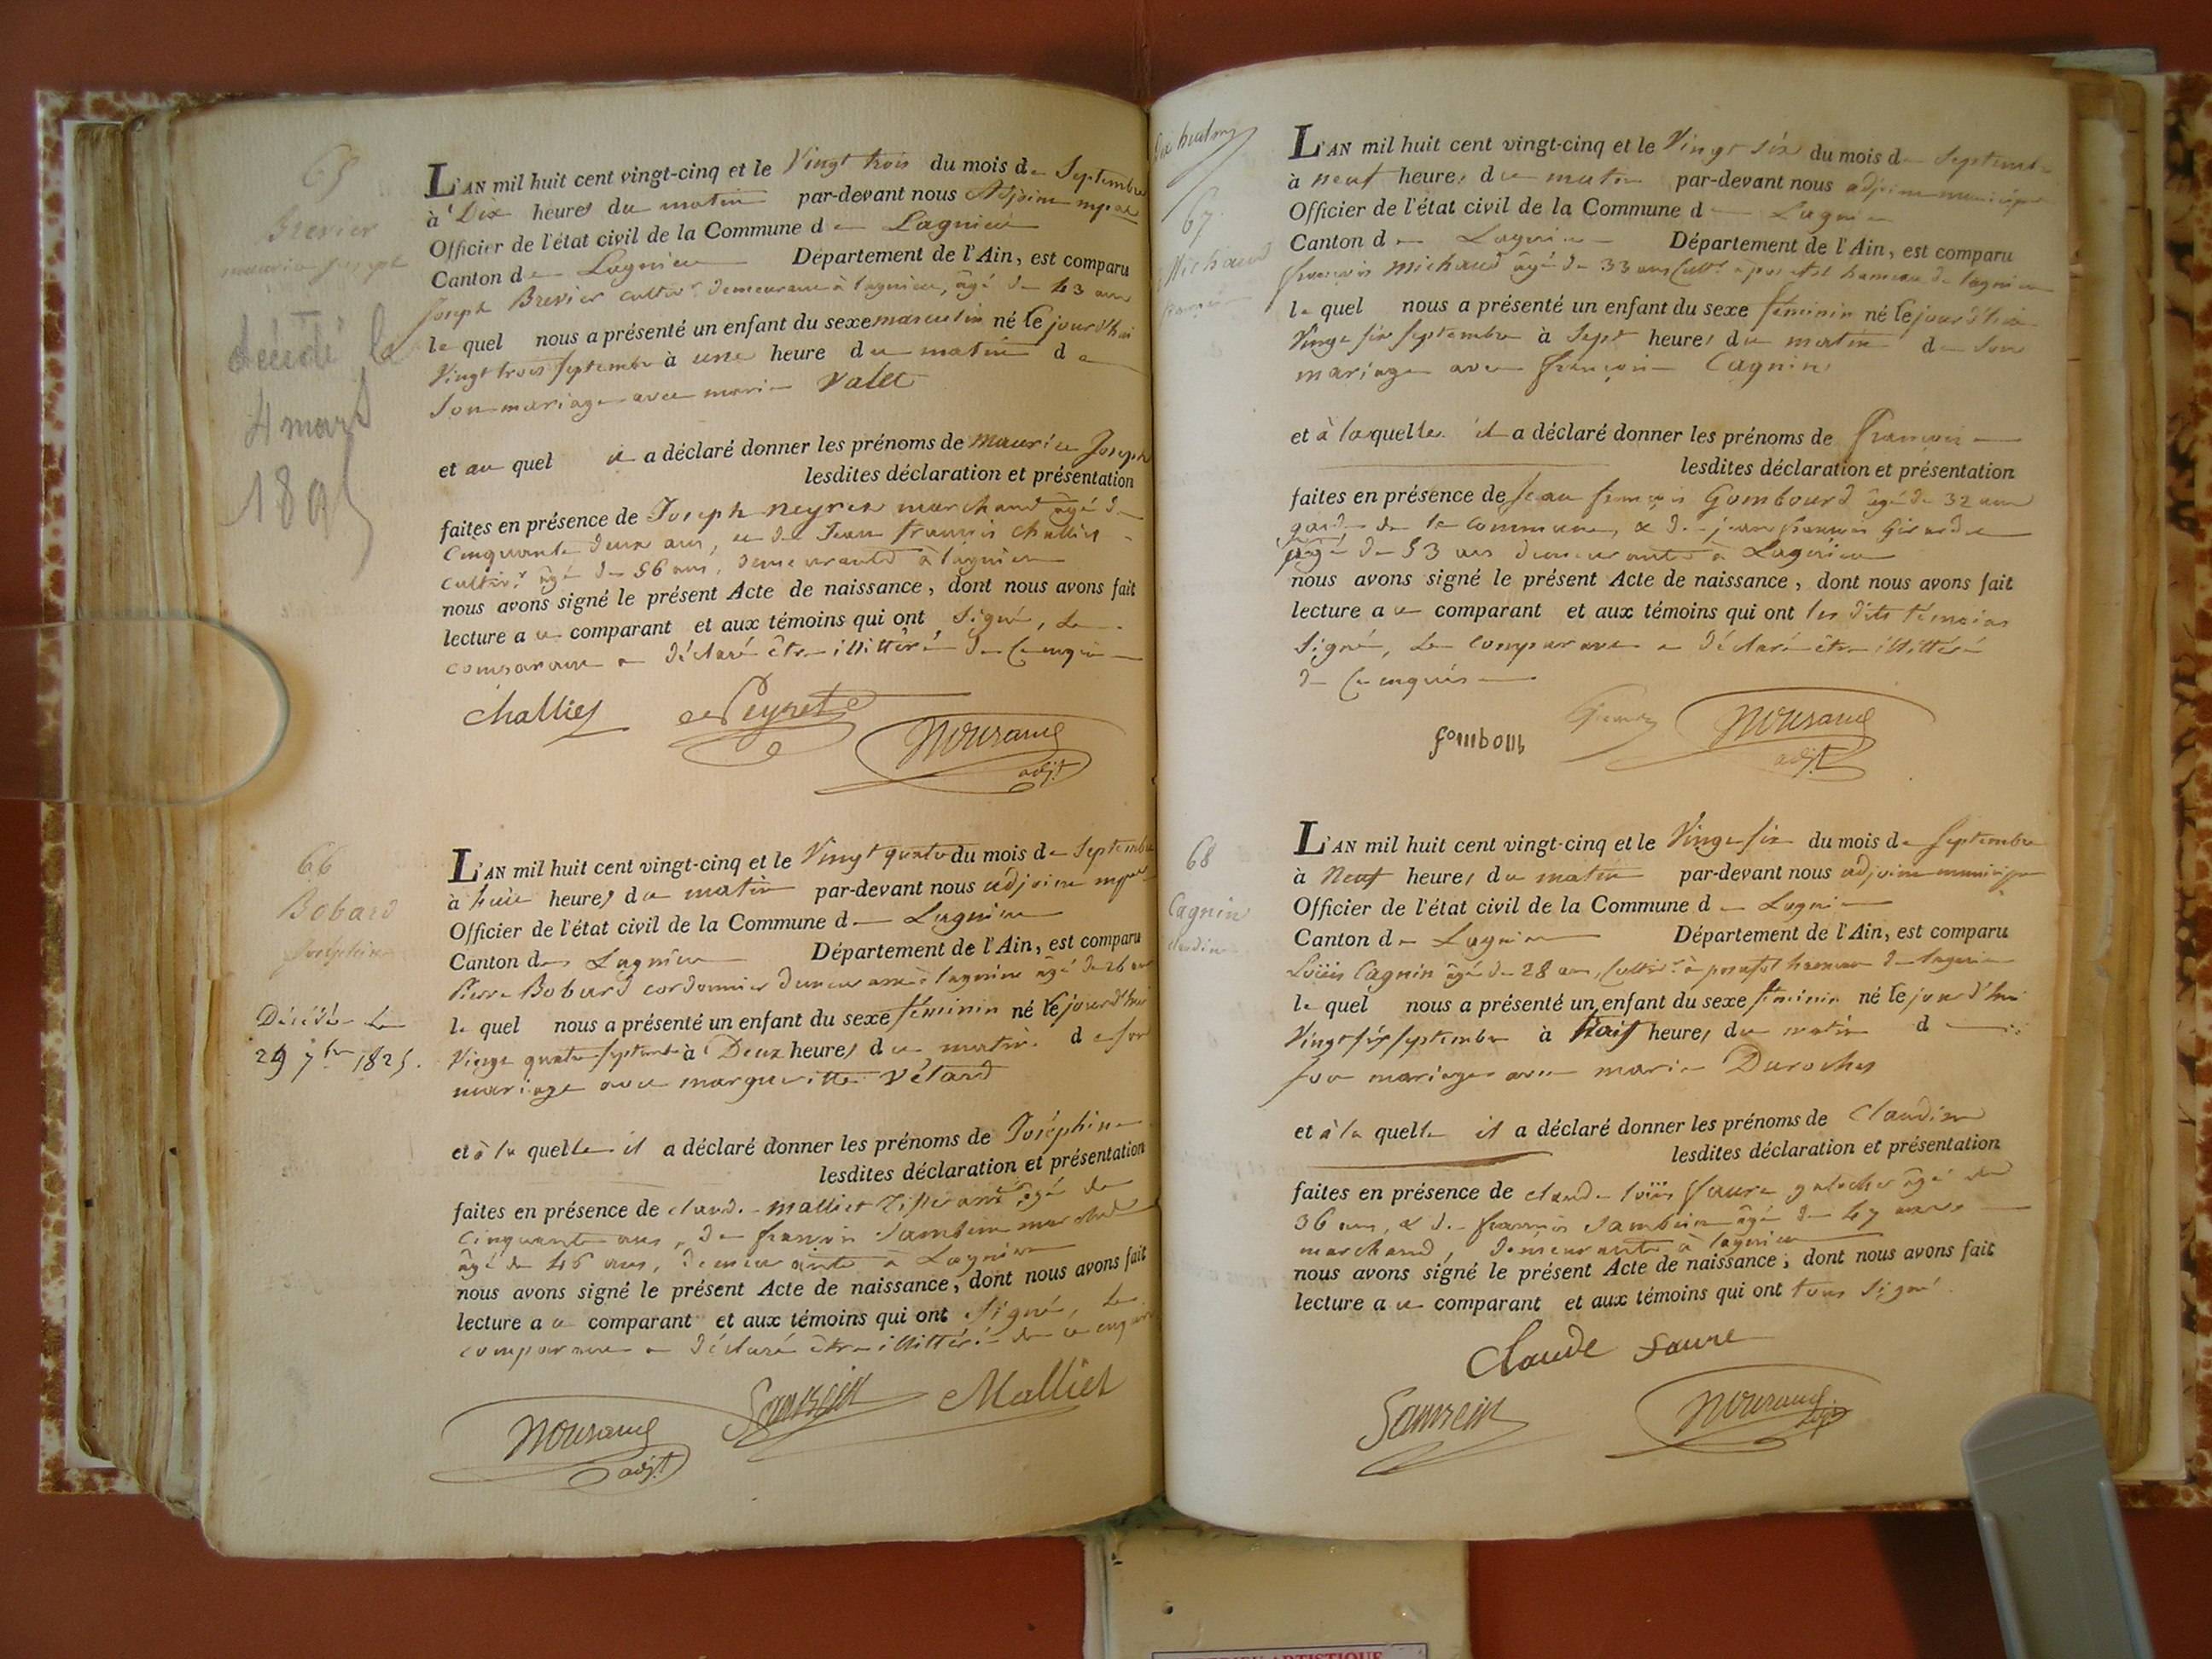 65
Brevier
maurice Joseph
décédé le
4 mars
L'AN mil huit cent vingt-cinq et le Vingt trois du mois de Septembre
à Dix heures du matin par-devant nous Adjoint mpal
Officier de l'état civil de la Commune de Lagnieu
Canton de Lagnieu Département de l'Ain, est comparu
Joseph Brevier cultivr demeurant à lagnieu, âgé de 43 ans
lequel nous a présenté un enfant du sexe masculin né le jourd'hui
Vingt trois septembre à une heure du matin de
son mariage avec marie Valet
et au quel il a déclaré donner les prénoms de maurice Joseph
lesdites déclaration et présentation
faites en présence de Joseph neyret marchand âgé de
cinquante deux ans, et de Jean François challiet
cultivr âgé de 56 ans, demeurants à lagnieu
nous avons signé le présent Acte de naissance, dont nous avons fait
lecture au comparant et aux témoins qui ont signé, le
comparant a déclaré être illittéré de ce enquis
66
Bobard
Joséphine
Décédée le
29 7bre 1825.
L'AN mil huit cent vingt-cinq et le Vingt quatre du mois de Septembre
à huit heures du matin par-devant nous adjoint mpal
Officier de l'état civil de la Commune de Lagnieu
Canton de Lagnieu Département de l'Ain, est comparu
Pierre Bobard cordonnier demeurant à lagnieu âgé de 26 ans
lequel nous a présenté un enfant du sexe féminin né le jourd'hui
Vingt quatre septembre à Deux heures du matin de son
mariage avec margueritte Vétard
et à la quelle il a déclaré donner les prénoms de Joséphine
lesdites déclaration et présentation
faites en présence de claude malliet tisserand âgé de
cinquante ans, de françois Sambein marchand
âgé de 46 ans, demeurants à Lagnieu
nous avons signé le présent Acte de naissance, dont nous avons fait
lecture au comparant et aux témoins qui ont signé, le
comparant a déclaré être illittéré de ce enquis
Malliet
67
Michaud
L'AN mil huit cent vingt-cinq et le Vingt six du mois de Septembre
à neuf heures du matin par-devant nous adjoint municipal
Officier de l'état civil de la Commune de Lagnieu
Canton de Lagnieu Département de l'Ain, est comparu
françois michaud âgé de 33 ans cultr à posafol hameau de lagnieu
lequel nous a présenté un enfant du sexe féminin né le jourd'hui
Vingt six septembre à Sept heures du matin de son
mariage avec françoise Cagnin
et à laquelle il a déclaré donner les prénoms de françoise
lesdites déclaration et présentation
faites en présence de Jean françois Gombourd âgé de 32 ans
garde de la commune, & de jean françois
âgé de 53 ans demeurants à Lagnieu
nous avons signé le présent Acte de naissance, dont nous avons fait
lecture au comparant et aux témoins qui ont les dits témoins
signé, le comparant a déclaré être illittéré
de ce enquis
68
Cagnin
claudine
L'AN mil huit cent vingt-cinq et le Vingt six du mois de septembre
à Neuf heures du matin par-devant nous adjoint municipal
Officier de l'état civil de la Commune de Lagnieu
Canton de Lagnieu Département de l'Ain, est comparu
Loüis Cagnin âgé de 28 ans, cultivr à posafol hameau de lagnieu
lequel nous a présenté un enfant du sexe féminin né le jourd'hui
Vingt six septembre à trois heures du matin de
son mariage avec marie Duroches
et à la quelle il a déclaré donner les prénoms de claudine
lesdites déclaration et présentation
faites en présence de claude loüis faure âgé de
36 ans, & de françois Sambein âgé de 47 ans
marchand, demeurants à lagnieu
nous avons signé le présent Acte de naissance, dont nous avons fait
lecture au comparant et aux témoins qui ont tous signé
Claude Faure